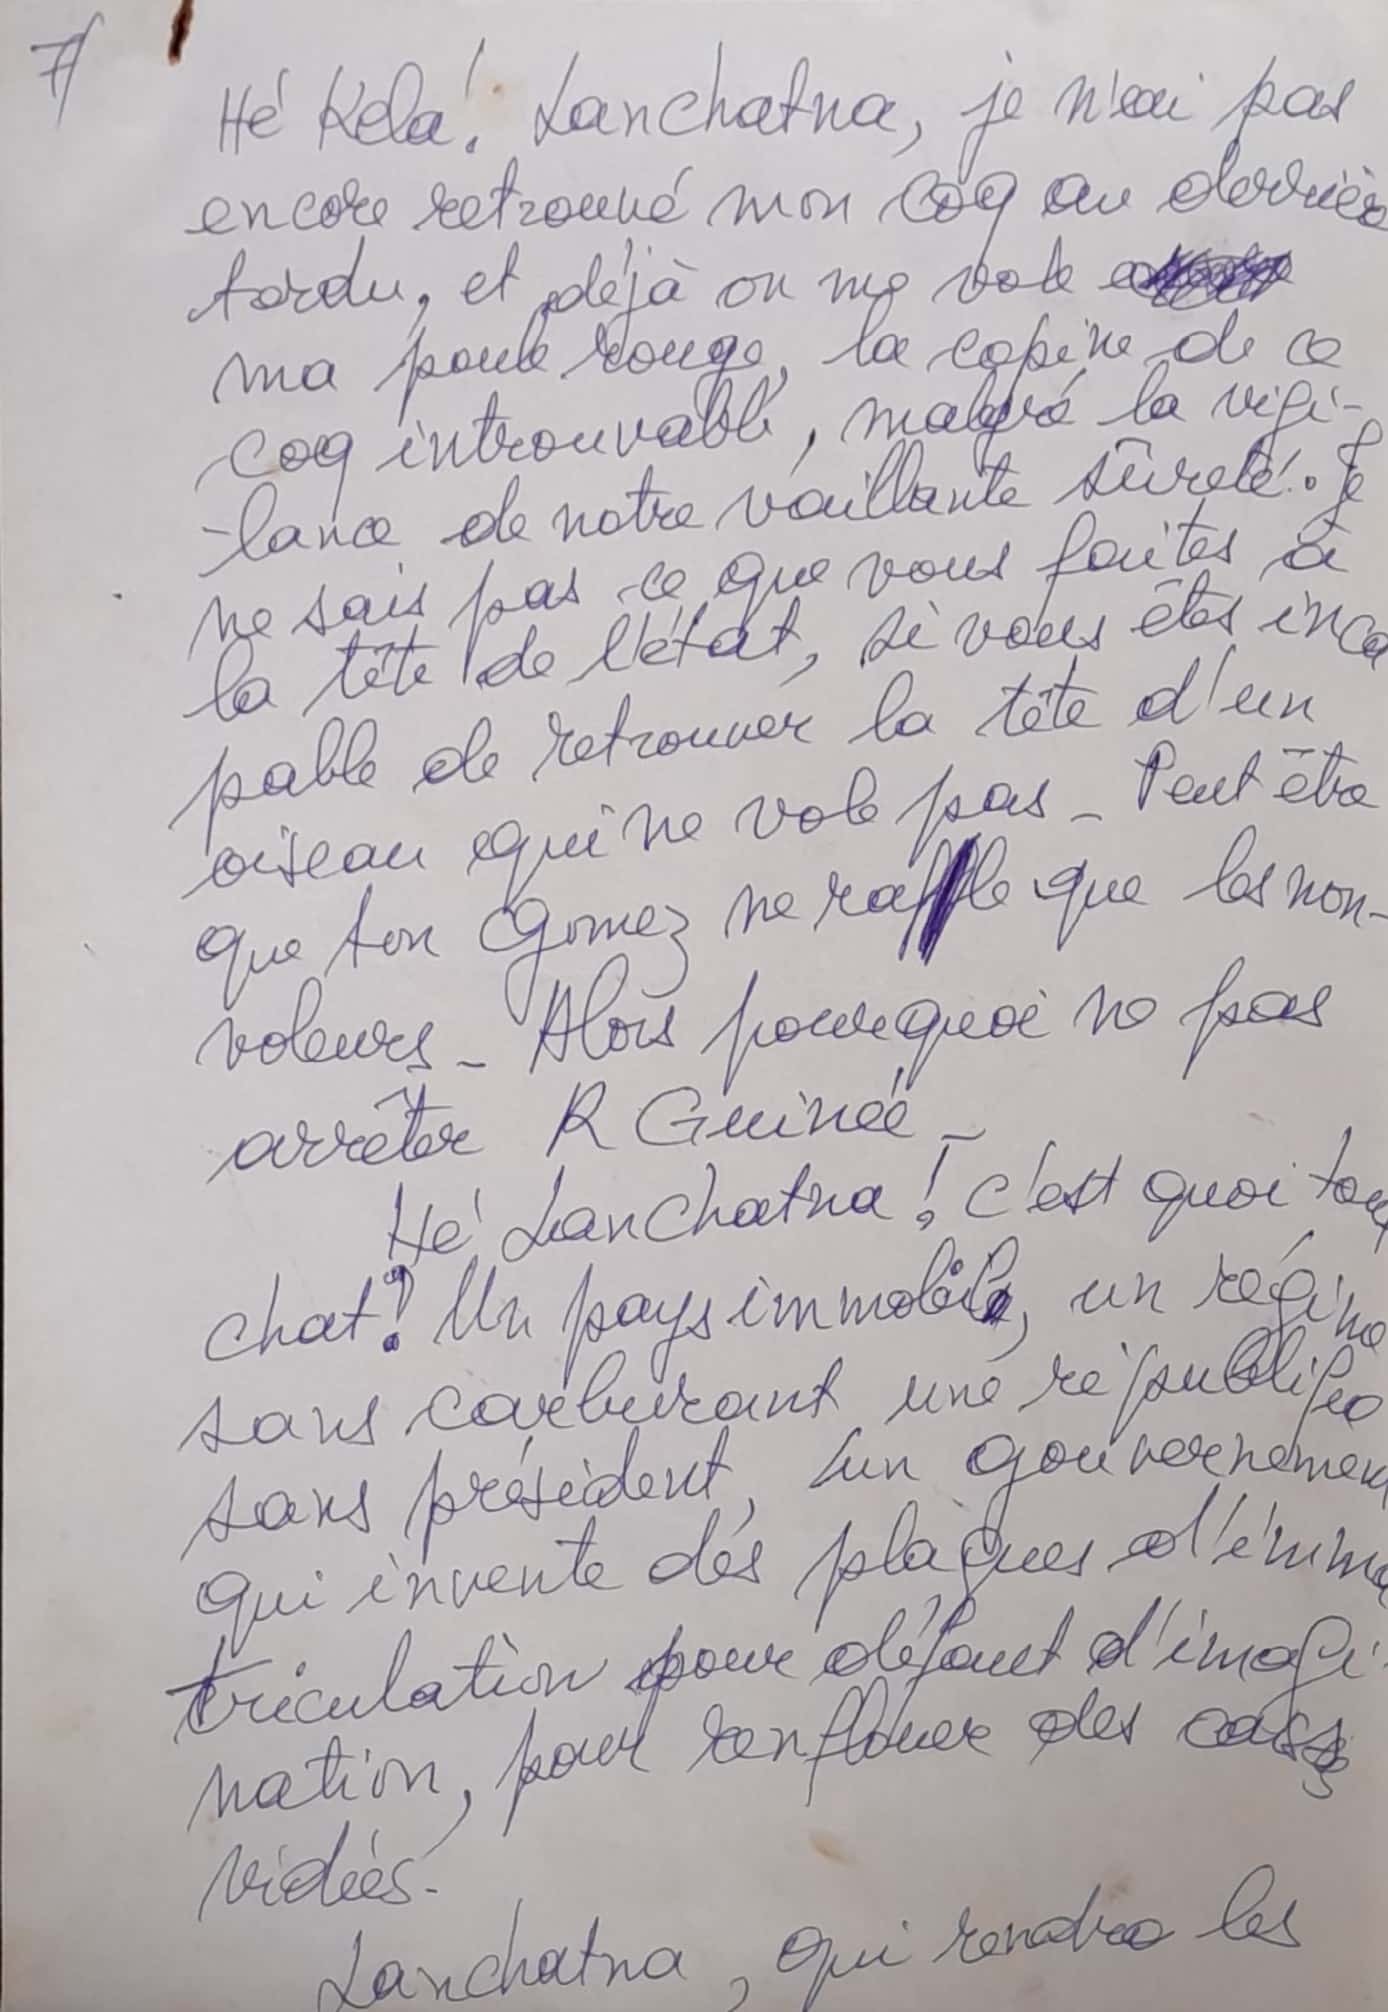 7/
Hé Kela! Lanchatna, je n'ai pas
encore retrouvé mon coq au derrièr
tordu, et déjà on me vole
ma poule rouge, la copine de ce
coq introuvable, malgré la vigi-
-lance de notre vaillante sûreté. Je
ne sais pas ce que vous faites à
la tête de l'état, si vous êtes inca
pable de retrouver la tête d'un
oiseau qui ne vole pas_ Peut être
que ton Gomez ne rafle que les non-
voleurs_ Alors pourquoi ne pas
arrêter R Guinée_
Hé Lanchatna! C'est quoi ton
chat? Un pays immobile, un régime
sans carburant une républiqe
sans président, un gouvernement
qui invente des plaques d'imma
triculation pour défaut d'imagi-
nation, pour renflouer des
vidées.
Lanchatna, qui rendra les